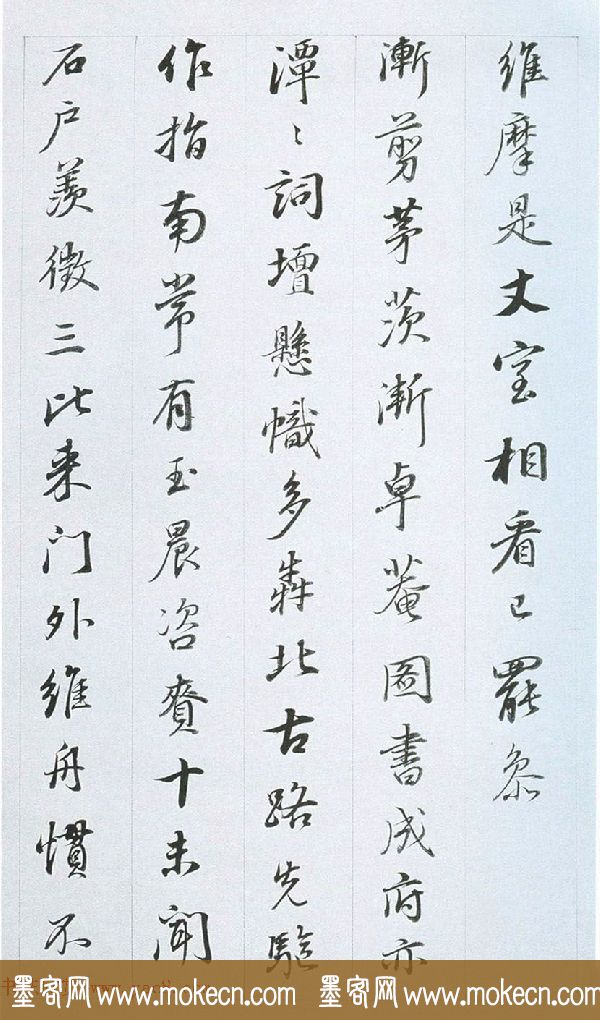 维摩是丈室相看已罷叅
漸剪茅茨漸卓菴圖書成府亦
潭〻詞壇懸幟多犇北古路先駈
作指南常有玉晨咨賚十未聞
石户羨徵三此来门外維舟慣不
墨客网www.mokecn.com 墨客网www.mokecn.com